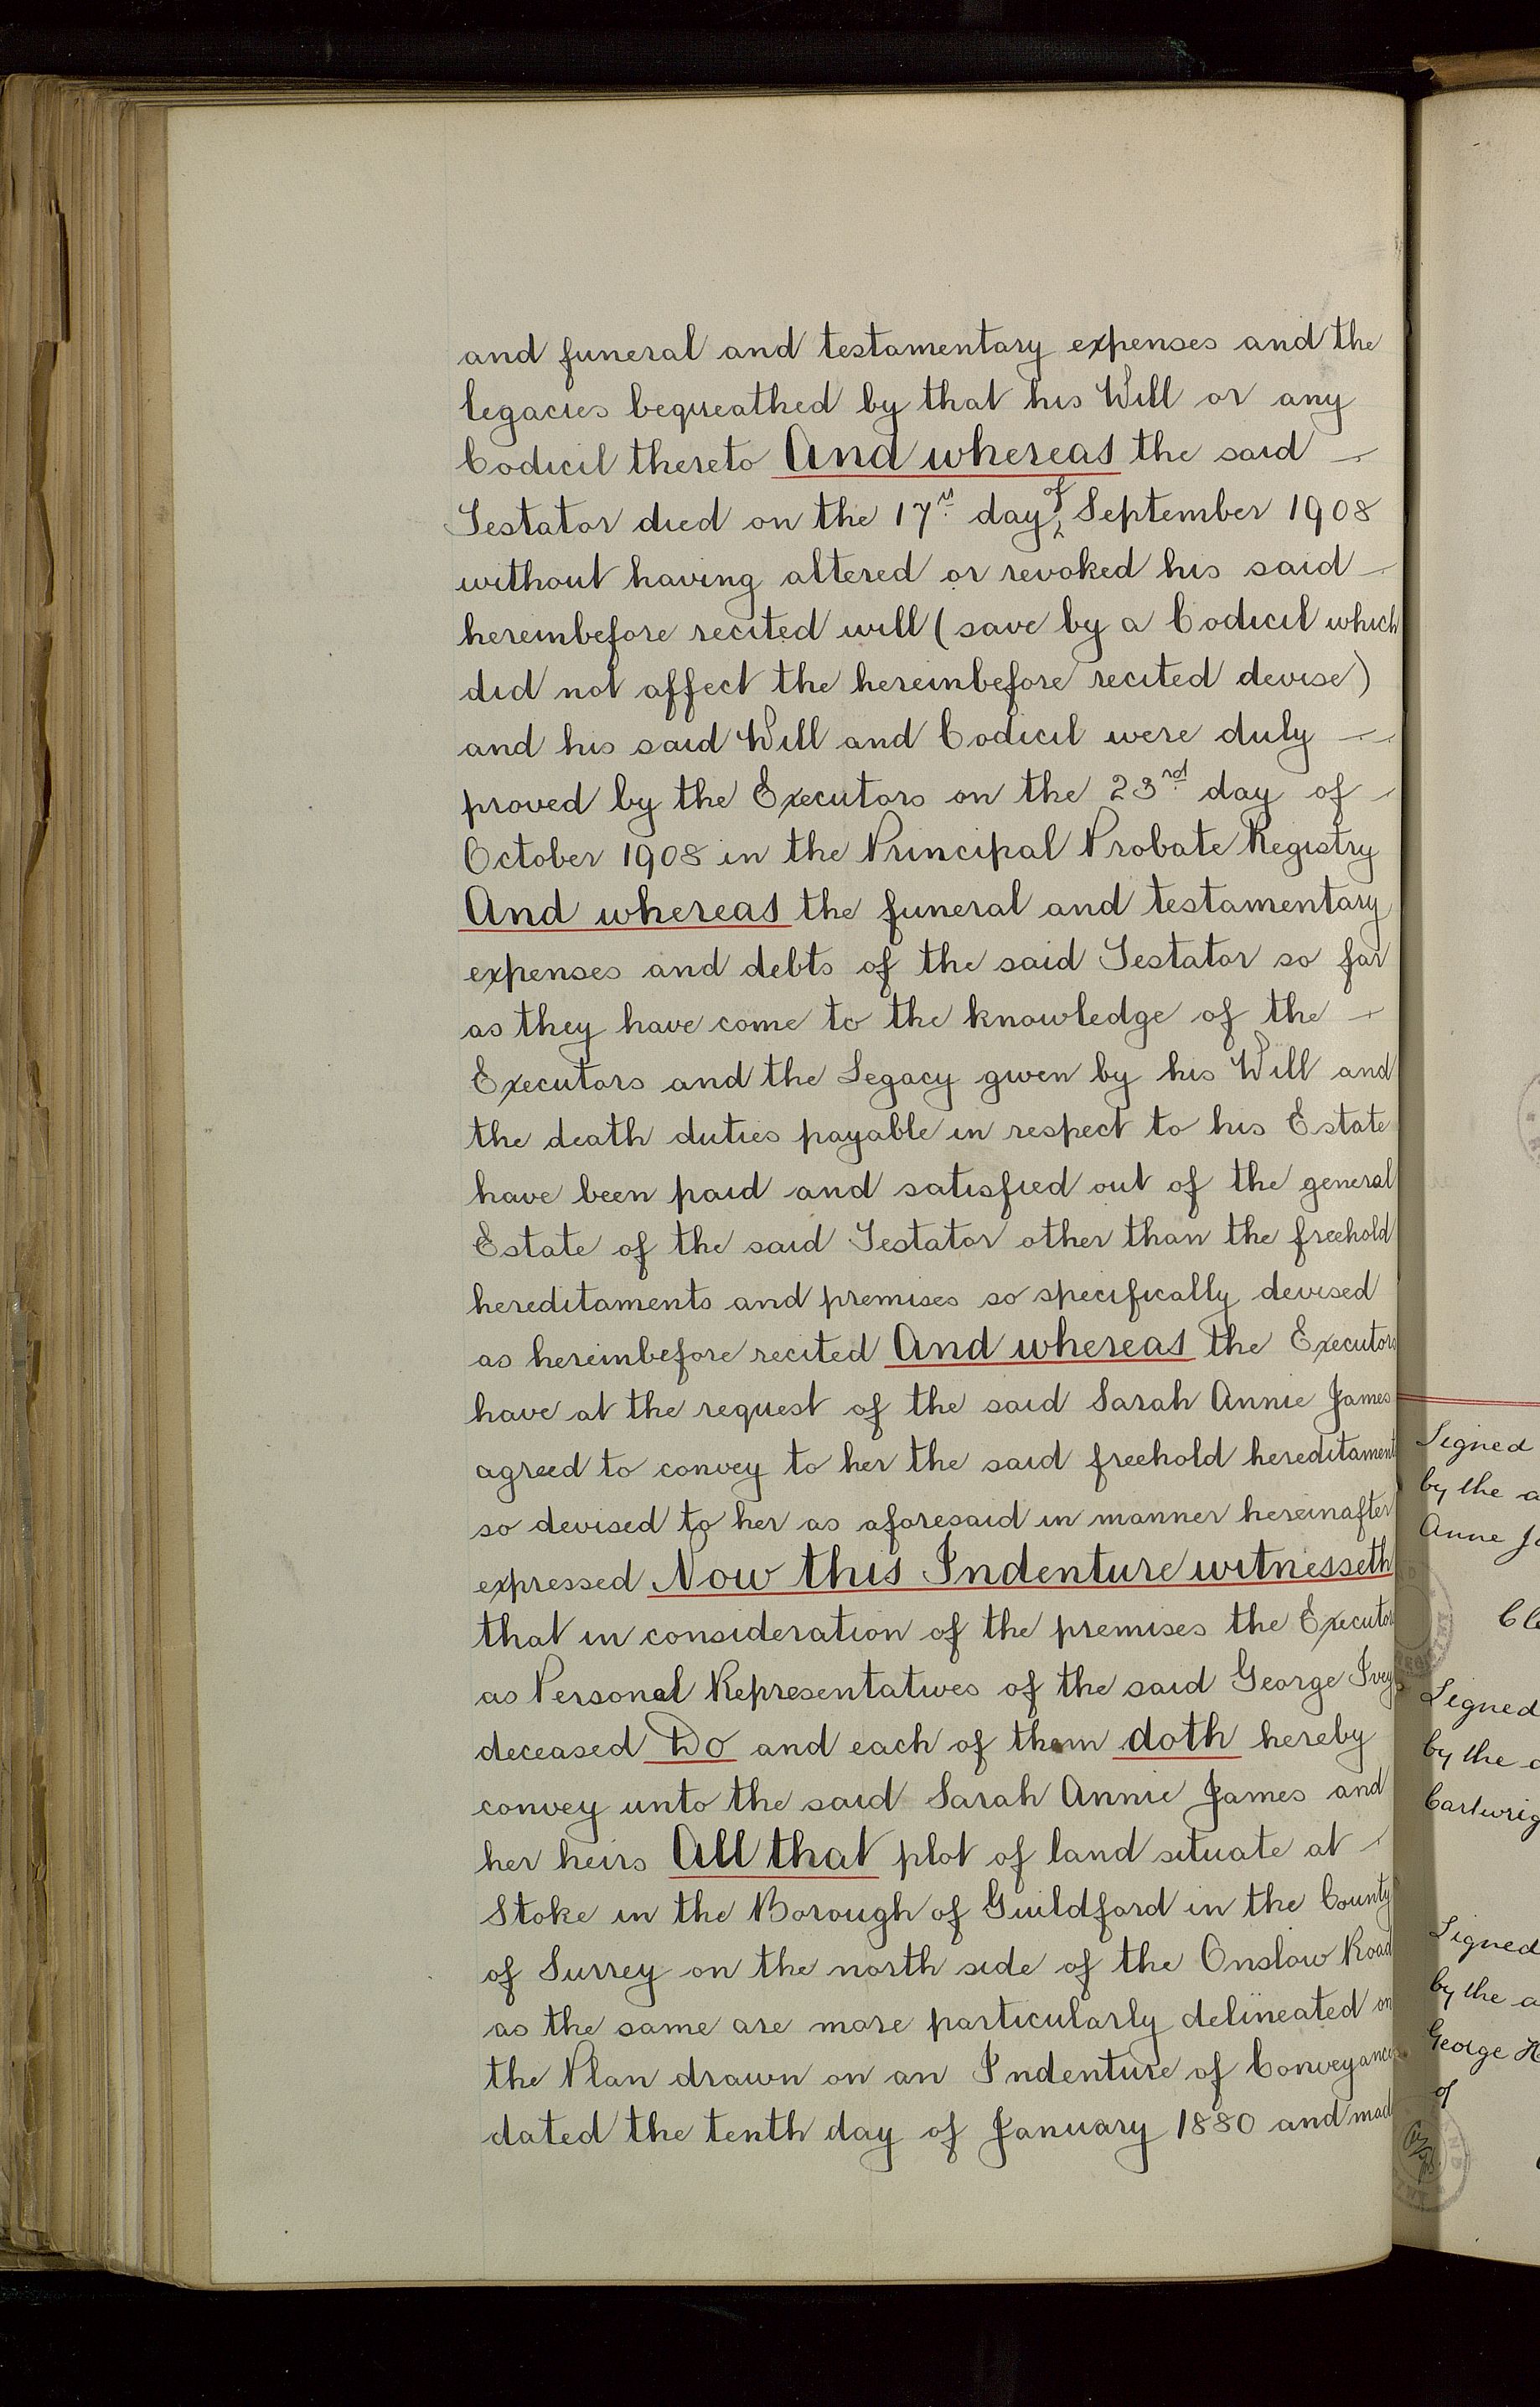 and funeral and testamentary expenses and the
legacies bequeathed by that his Will or any
Codicil thereto And whereas the said
Testator died on the 17th day of September 1908
without having altered or revoked his said
hereinbefore recited will (save by a Codicil which
did not affect the hereinbefore recited devise)
and his said Will and Codicil were duly
proved by the Executors on the 23rd day of
October 1908 in the Principal Probate Registry
And whereas the funeral and testamentary
expenses and debts of the said Testator so far
as they have come to the knowledge of the
Executors and the Legacy given by his Will and
the death duties payable in respect to his Estate
have been paid and satisfied out of the general
Estate of the said Testator other than the freehold
hereditaments and premises so specifically devised
as hereinbefore recited And whereas the Executors
have at the request of the said Sarah Annie James
agreed to convey to her the said freehold hereditament
so devised to her as aforesaid in manner hereinafter
expressed Now this Indenture witnesseth
that in consideration of the premises the Executor
as Personal Representatives of the said George Ivey
deceased Do and each of them doth hereby
convey unto the said Sarah Annie James and
her heirs All that plot of land situate at
Stoke in the Borough of Guildford in the County
of Surrey on the north side of the Onslow Road
as the same are more particularly delineated on
the Plan drawn on an Indenture of Conveyance
dated the tenth day of January 1880 and mad
Signed
by the a
Anne Ja
Cle
Signed
by the a
Cartwrig
Signed
by the a
George H
of